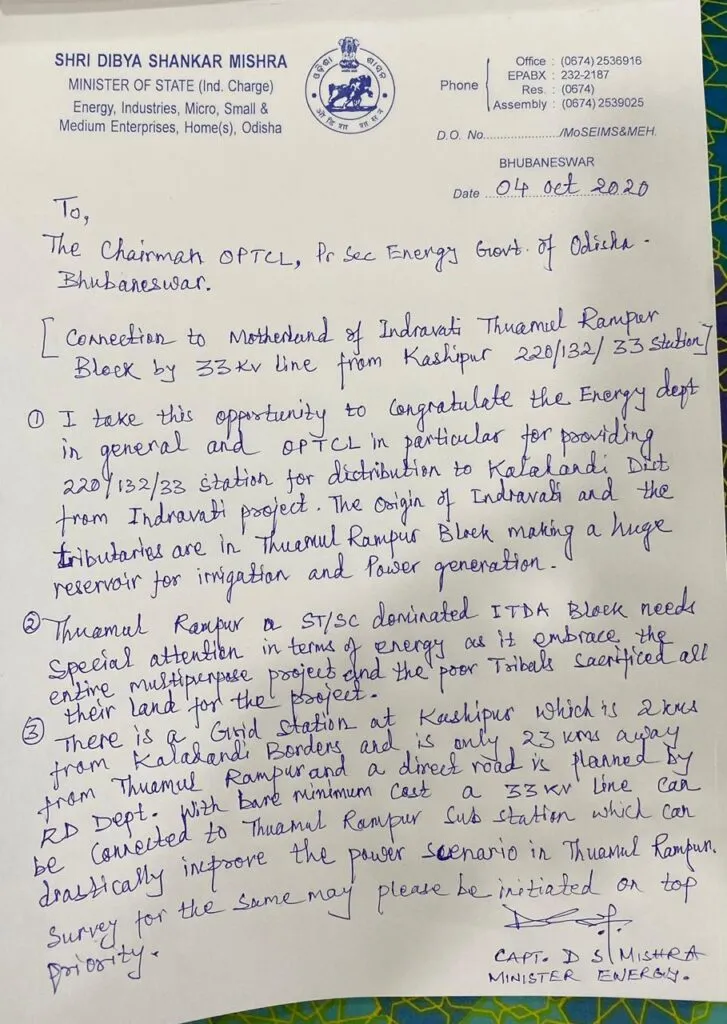 SHRI DIBYA SHANKAR MISHRA
MINISTER OF STATE (Ind. Charge)
Energy, Industries, Micro, Small &
Medium Enterprises, Home(s), Odisha
ଓଡ଼ିଶା ଶାସନ
Phone
Office : (0674) 2536916
EPABX : 232-2187
Res. : (0674)
Assembly : (0674) 2539025
D.O. No...................../MoSEIMS&MEH.
BHUBANESWAR
Date 04 Oct 2020
To,
The Chairman OPTCL, Pr Sec Energy Govt. of Odisha.
Bhubaneswar.
[Connection to Motherland of Indravati Thuamul Rampur
Block by 33 KV Line from Kashipur 220/132/33 Station]
① I take this opportunity to Congratulate the Energy dept
in general and OPTCL in particular for providing
220/132/33 Station for distribution to Kalahandi Dist
from Indravati project. The Origin of Indravati and the
tributaries are in Thuamul Rampur Block making a huge
reservoir for irrigation and Power generation.
② Thuamul Rampur a ST/SC dominated ITDA Block needs
Special attention in terms of energy as it embrace the
entire multipurpose project and the poor Tribals sacrificed all
their land for the project.
③ There is a Grid Station at Kashipur which is 2 kms
from Kalahandi Borders and is only 23 kms away
from Thuamul Rampur and a direct road is planned by
RD Dept. With bare minimum Cost a 33 KV Line can
be Connected to Thuamul Rampur Sub Station which can
drastically improve the power scenario in Thuamul Rampur.
Survey for the same may please be initiated on top
priority.
CAPT. D S MISHRA
MINISTER ENERGY.